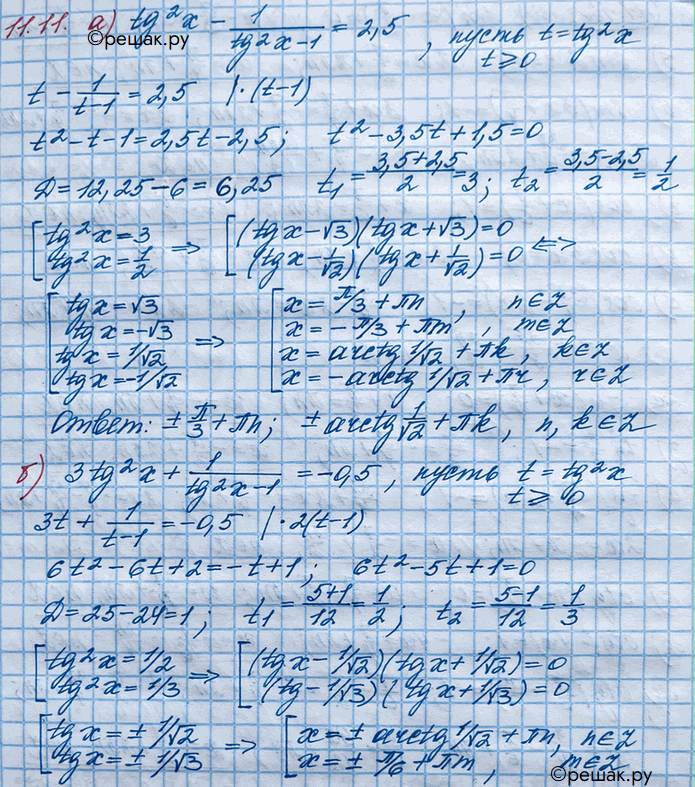 11.11. а) tg²x - 1/(tg²x-1) = 2,5 , пусть t = tg²x
©решак.ру t ≥ 0
t - 1/(t-1) = 2,5 |·(t-1)
t² - t - 1 = 2,5t - 2,5; t² - 3,5t + 1,5 = 0
D = 12,25 - 6 = 6,25 t₁ = (3,5+2,5)/2 = 3; t₂ = (3,5-2,5)/2 = 1/2
[ tg²x = 3 ⇒ [ (tgx - √3)(tgx + √3) = 0
tg²x = 1/2 (tgx - 1/√2)(tgx + 1/√2) = 0 ⇔
[ tgx = √3 [ x = π/3 + πn, n ∈ Z
tgx = -√3 ⇒ x = -π/3 + πm, m ∈ Z
tgx = 1/√2 x = arctg 1/√2 + πk, k ∈ Z
tgx = -1/√2 x = -arctg 1/√2 + πr, r ∈ Z
Ответ: ± π/3 + πn; ± arctg 1/√2 + πk, n, k ∈ Z
б) 3tg²x + 1/(tg²x-1) = -0,5, пусть t = tg²x
t ≥ 0
3t + 1/(t-1) = -0,5 |·2(t-1)
6t² - 6t + 2 = -t + 1; 6t² - 5t + 1 = 0
D = 25 - 24 = 1; t₁ = (5+1)/12 = 1/2; t₂ = (5-1)/12 = 1/3
[ tg²x = 1/2 ⇒ [ (tgx - 1/√2)(tgx + 1/√2) = 0
tg²x = 1/3 (tg - 1/√3)(tgx + 1/√3) = 0
[ tgx = ± 1/√2 ⇒ [ x = ± arctg 1/√2 + πn, n ∈ Z
tgx = ± 1/√3 x = ± π/6 + πm, m ∈ Z
©решак.ру